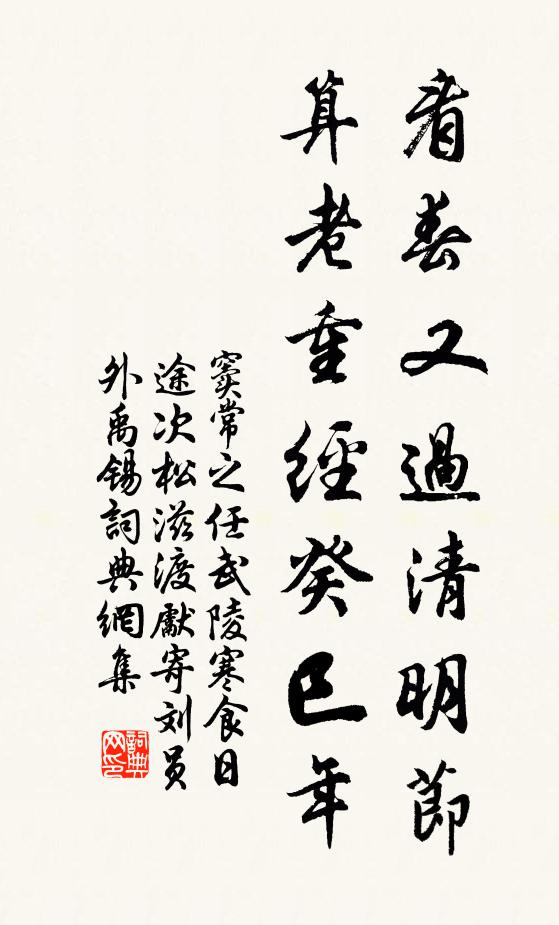 看春又過清明節
算老重經癸巳年
竇常之任武陵寒食日
途次松滋渡獻寄刘员
外禹锡詞典網集
詞典
网印